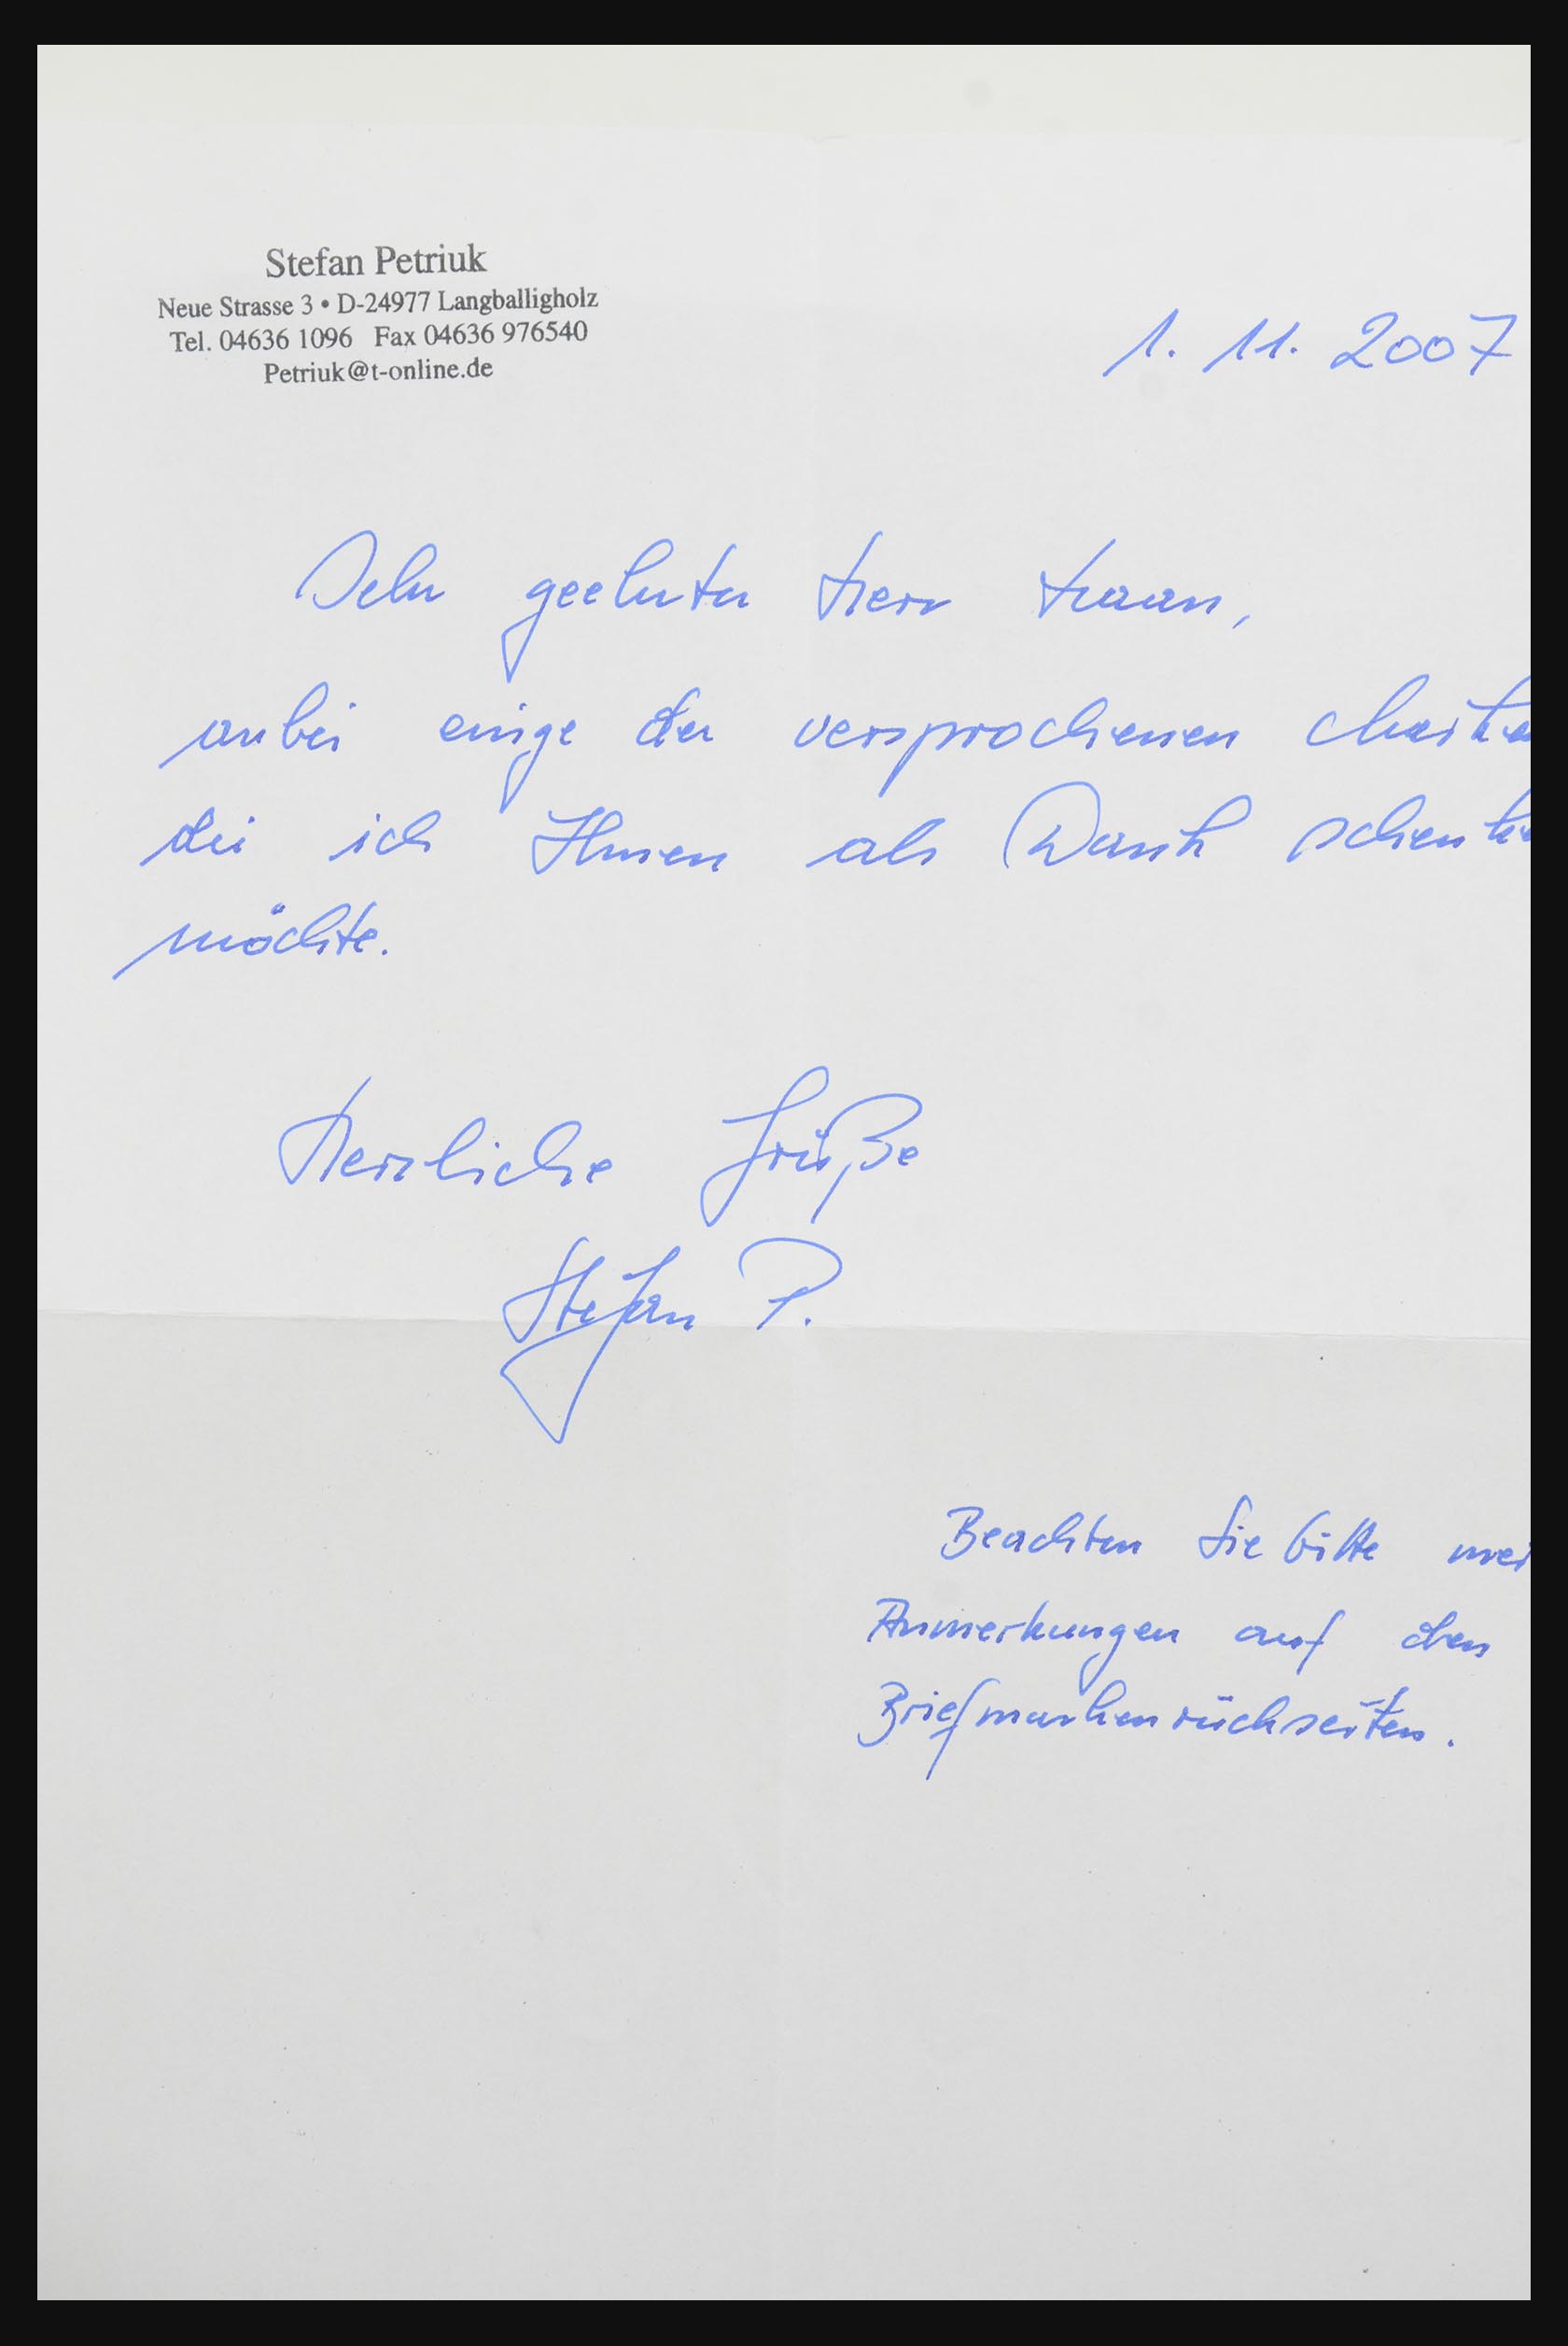 Stefan Petriuk
Neue Strasse 3 • D-24977 Langballigholz
Tel. 04636 1096 Fax 04636 976540
Petriuk@t-online.de
1. 11. 2007
Sehr geehrter Herr Haan,
anbei einige der versprochenen
die ich Ihnen als Dank schenke
möchte.
Herzliche Grüße
Stefan P.
Beachten Sie bitte mei
Anmerkungen auf den
Briefmarkenrückseiten.